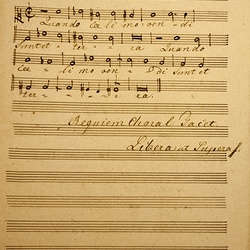 Quando Cæli mo ven - di
sunt et ter - - ra Quando
cæ - li mo ven - - di sunt et
ter - - - ra.
Requiem Choral Tacet
Libera ut Supra